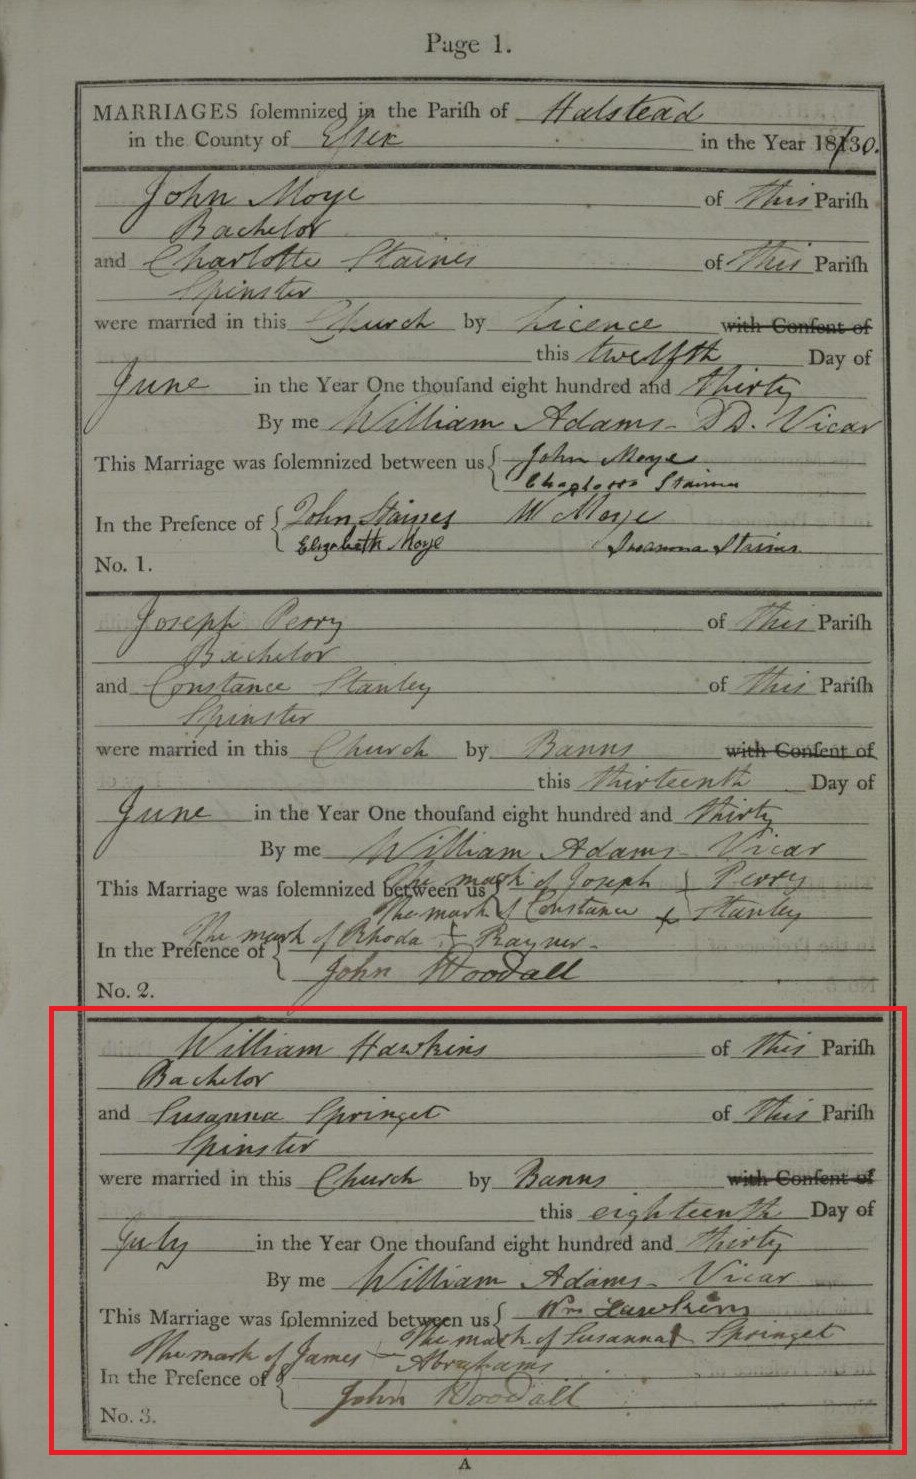 Page 1.
MARRIAGES ſolemnized in the Pariſh of Halstead
in the County of Essex in the Year 18130.
John Moye of this Pariſh
Bachelor
and Charlotte Staines of this Pariſh
Spinster
were married in this Church by Licence with Conſent of
this twelfth Day of
June in the Year One thouſand eight hundred and thirty
By me William Adams - DD. Vicar
This Marriage was ſolemnized between us { John Moye
Charlotte Staines
In the Preſence of { John Staines W Moye
Elizabeth Moye Susanna Staines
No. 1.
Joseph Perry of this Pariſh
Bachelor
and Constance Stanley of this Pariſh
Spinster
were married in this Church by Banns with Conſent of
this thirteenth Day of
June in the Year One thouſand eight hundred and thirty
By me William Adams - Vicar
The mark of Joseph | Perry
This Marriage was ſolemnized between us {
The mark of Constance x Stanley
The mark of Rhoda + Rayner -
In the Preſence of {
John Woodall
No. 2.
William Hawkins of this Pariſh
Bachelor
and Susanna Springet of this Pariſh
Spinster
were married in this Church by Banns with Conſent of
this eighteenth Day of
July in the Year One thouſand eight hundred and thirty
By me William Adams - Vicar
This Marriage was ſolemnized between us { Wm Hawkins
The mark of Susanna | Springet
The mark of James — Abrahams
In the Preſence of {
John Woodall
No. 3.
A